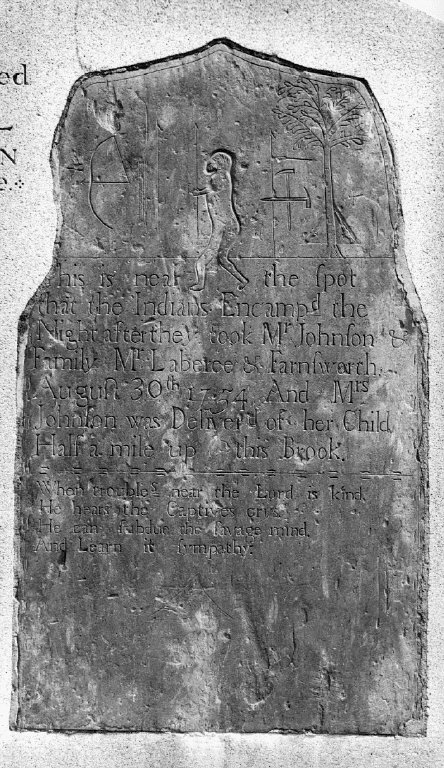 ed
N
e
This is near the spot
that the Indians Encampd the
Night after they took Mr Johnſon &
Family Mr Laberee & Farnſworth.
Auguſt 30th 1754 And Mrs
Johnſon was Deliverd of her Child
Half a mile up this Brook.
When trouble's near the Lord is kind,
He hears the Captives crys.
He can ſubdue the ſavage mind,
And Learn it ſympathy.